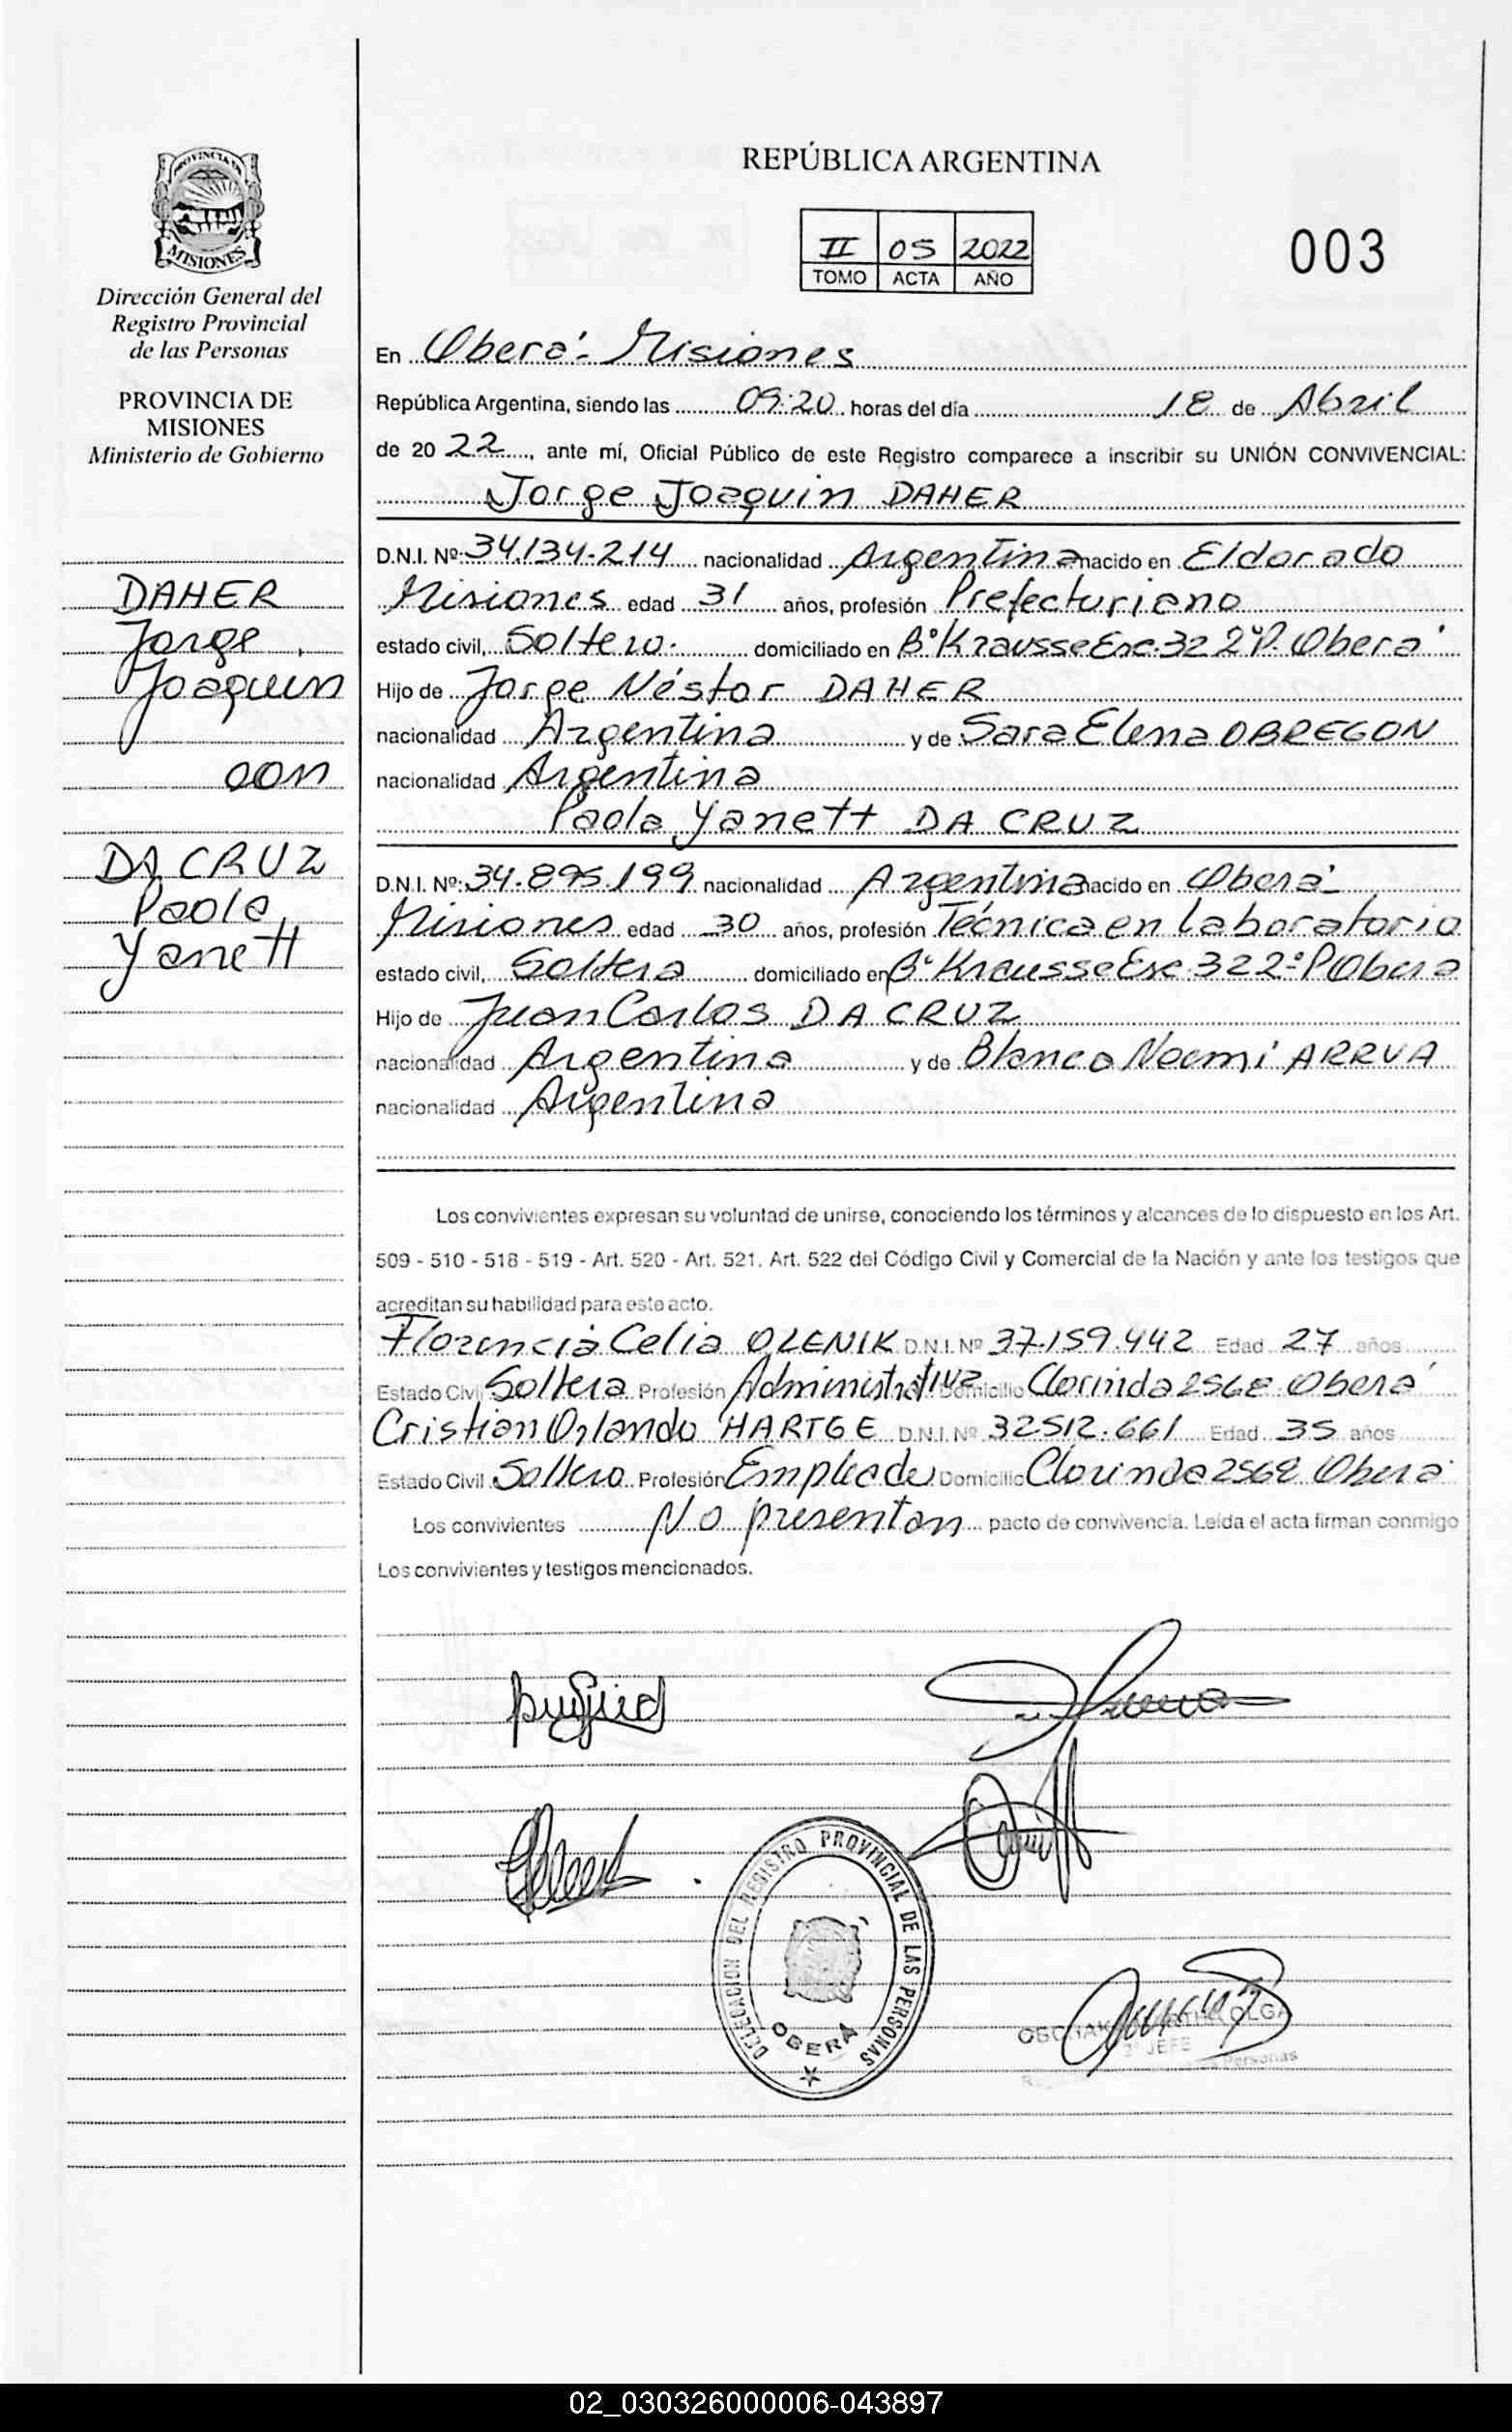 PROVINCIA DE
MISIONES
Dirección General del
Registro Provincial
de las Personas
PROVINCIA DE
MISIONES
Ministerio de Gobierno
DAHER
Jorge
Joaquin
con
DA CRUZ
Paola
Yanett
REPÚBLICA ARGENTINA
II 05 2022
TOMO ACTA AÑO
003
En Oberá - Misiones
República Argentina, siendo las 09:20 horas del día 18 de Abril
de 20 22, ante mí, Oficial Público de este Registro comparece a inscribir su UNIÓN CONVIVENCIAL:
Jorge Joaquin DAHER
D.N.I. Nº: 34.134.214 nacionalidad Argentina nacido en Eldorado
Misiones edad 31 años, profesión Prefecturiano
estado civil, Soltero. domiciliado en Bº Krausse Esc. 32 2º P. Oberá
Hijo de Jorge Néstor DAHER
nacionalidad Argentina y de Sara Elena OBREGON
nacionalidad Argentina
Paola Yanett DA CRUZ
D.N.I. Nº: 34.895.199 nacionalidad Argentina nacido en Oberá
Misiones edad 30 años, profesión Técnica en Laboratorio
estado civil, Soltera domiciliado en Bº Krausse Esc 32 2º P Oberá
Hijo de Juan Carlos DA CRUZ
nacionalidad Argentina y de Blanca Noemí ARRUA
nacionalidad Argentina
Los convivientes expresan su voluntad de unirse, conociendo los términos y alcances de lo dispuesto en los Art.
509 - 510 - 518 - 519 - Art. 520 - Art. 521. Art. 522 del Código Civil y Comercial de la Nación y ante los testigos que
acreditan su habilidad para este acto.
Florencia Celia OLENIK D.N.I. Nº 37.159.442 Edad 27 años
Estado Civil Soltera Profesión Administrativa Domicilio Clorinda 2568 Oberá
Cristian Orlando HARTGE D.N.I. Nº 32512.661 Edad 35 años
Estado Civil Soltero Profesión Empleado Domicilio Clorinda 2568 Oberá
Los convivientes No presentan pacto de convivencia. Leída el acta firman conmigo
Los convivientes y testigos mencionados.
DELEGACION DEL REGISTRO PROVINCIAL DE LAS PERSONAS
OBERÁ
OLGA
2º JEFE
Personas
02_030326000006-043897